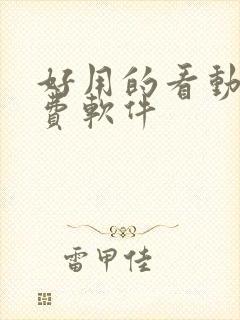 好用的看動
費軟件
雷甲佳